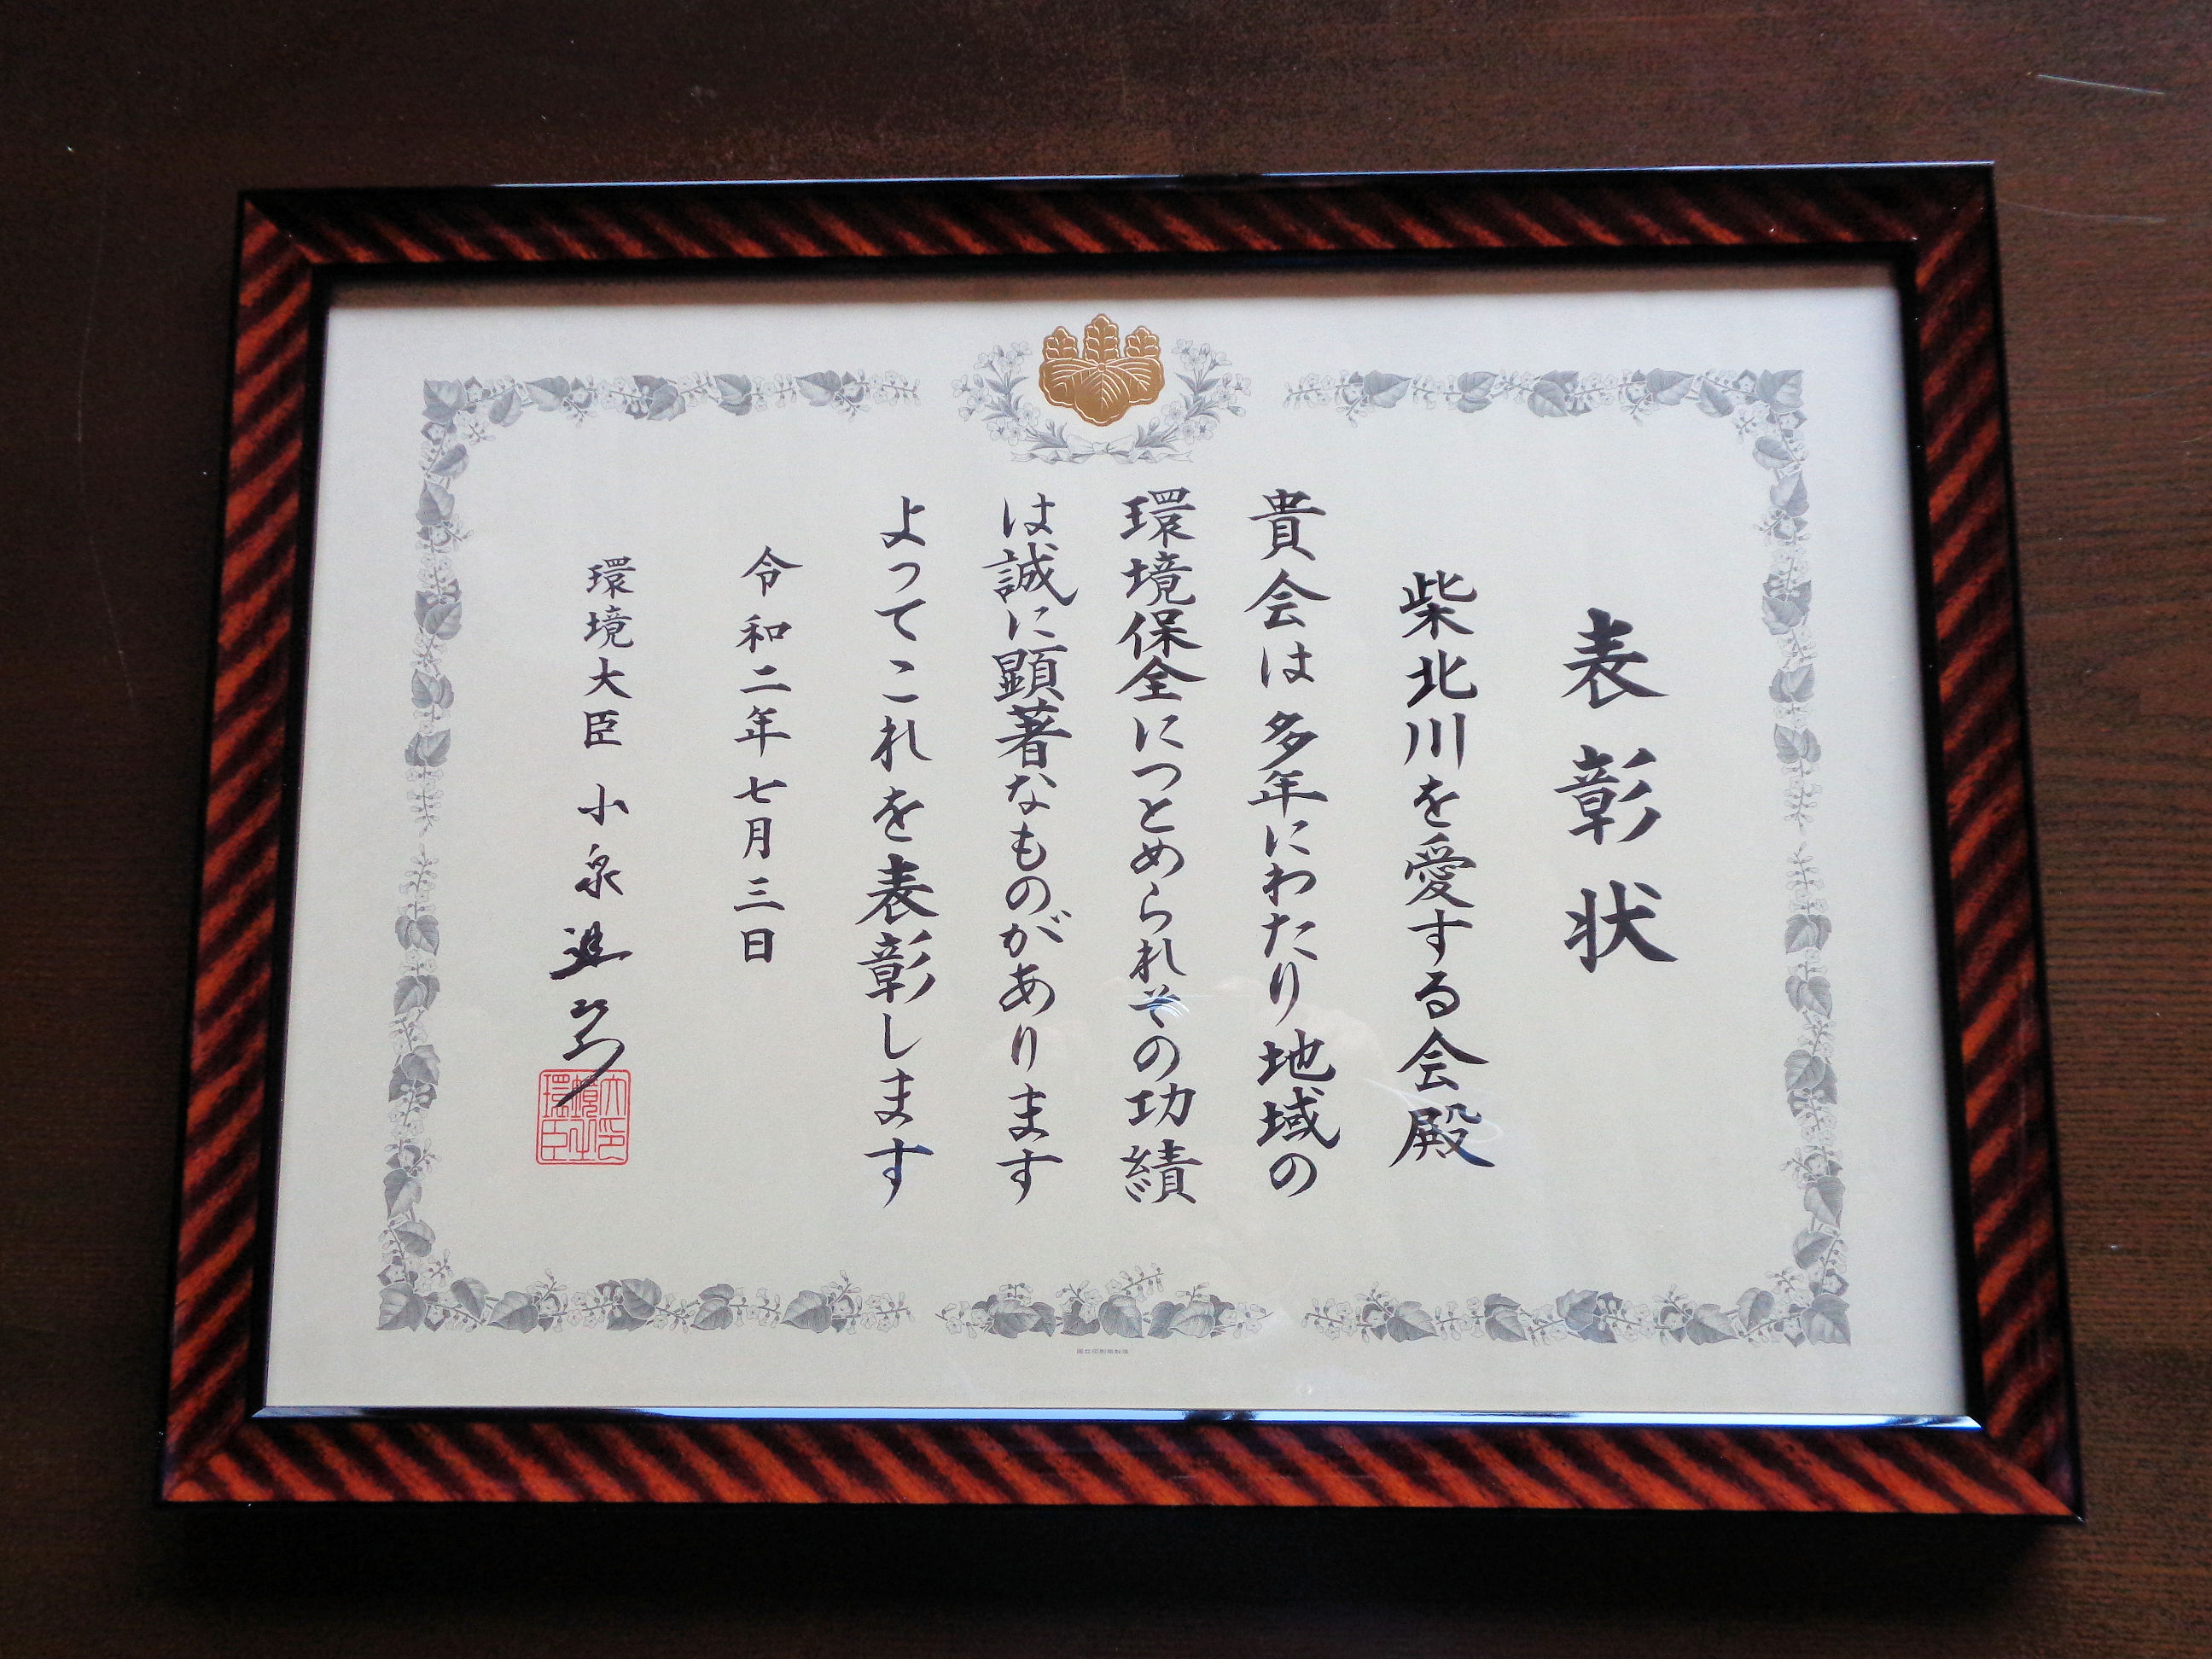 表彰状
柴北川を愛する会殿
貴会は多年にわたり地域の
環境保全につとめられその功績
は誠に顕著なものがあります
よってこれを表彰します
令和二年七月三日
環境大臣 小泉進次郎